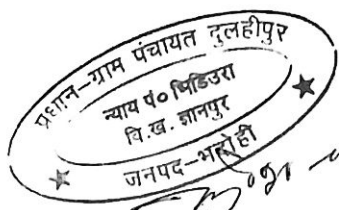 प्रधान-ग्राम पंचायत दुलहीपुर
न्याय पं० भिडिउरा
वि.ख. ज्ञानपुर
जनपद-भदोही